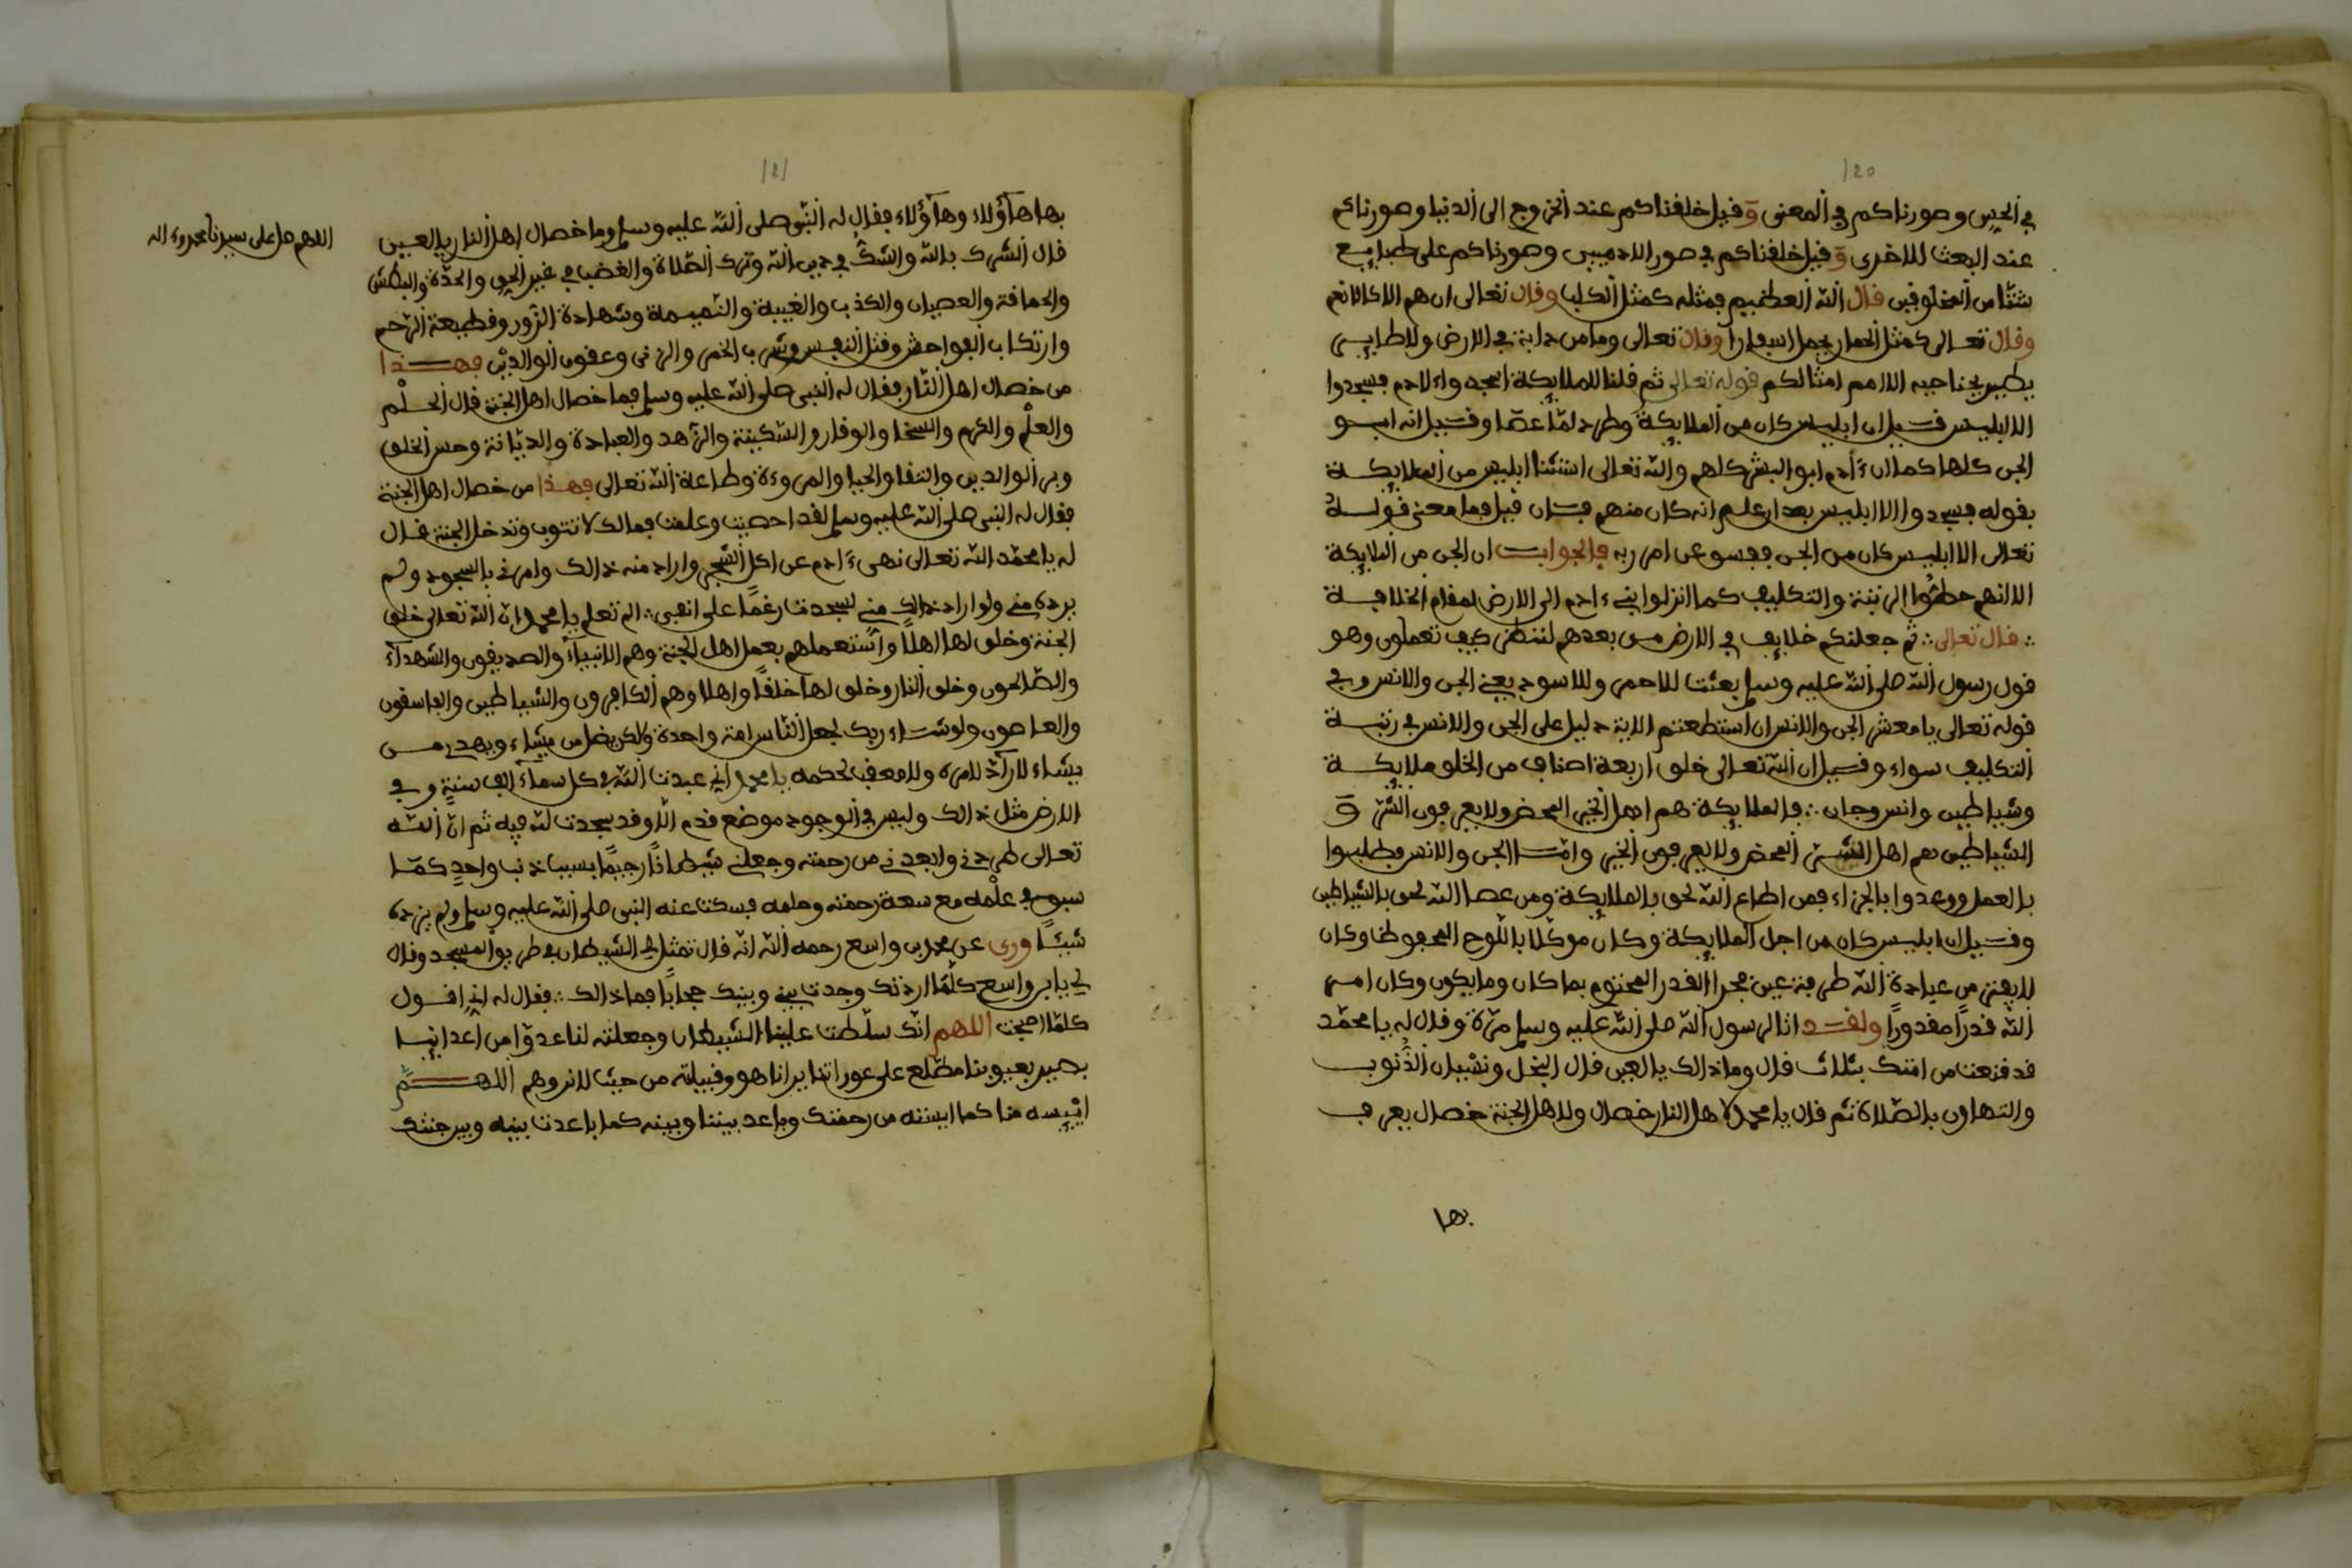 120
في الحس وصورناكم في المعنى وقيل خلقناكم عند الخروج الى الدنيا وصورناكم
عند البعث للاخرى وقيل خلقناكم في صور الادميين وصورناكم على طبايع
شتا من المخلوقين قال الله العظيم فمثله كمثل الكلب وقال تعالى ان هم الا كالانعم
وقال تعالى كمثل الحمار يحمل اسفارا وقال تعالى وما من دابة في الارض ولا طاير
يطير بجناحيه الا امم امثالكم قوله تعالى ثم قلنا للملايكة اسجدوا لادم فسجدوا
الا ابليس قيل ان ابليس كان من الملايكة وطرد لما عصا وقيل انه ابو
الجن كلها كما ان ءادم ابو البشر كلهم والله تعالى استثنا ابليس من الملايكة
بقوله فسجدوا الا ابليس بعد ان علم انه كان منهم فان قيل فما معنى قوله
تعالى الا ابليس كان من الجن ففسق عن امر ربه فالجواب ان الجن من الملايكة
الا انهم حطوا الى رتبة والتكليف كما انزلوا بني ءادم الى الارض لمقام الخلافة
قال تعالى ثم جعلنكم خلايف في الارض من بعدهم لننظر كيف تعملون وهو
قول رسول الله صلى الله عليه وسلم بعثت للاحمر وللاسود يعني الجن والانس وفي
قوله تعالى يا معشر الجن والانس ان استطعتم الاية دليل على الجن والانس في رتبة
التكليف سواء وقيل ان الله تعالى خلق اربعة اصناف من الخلق ملايكة
وشياطين وانس وجان فالملايكة هم اهل الخير المحض ولا يعرفون الشر و
الشياطين هم اهل الشر المحض ولا يعرفون الخير وامـا الجن والانس فطلبوا
بالعمل ووعدوا بالجزاء فمن اطاع الله لحق بالملايكة ومن عصا الله لحق بالشياطين
وقيل ان ابليس كان من اجل الملايكة وكان موكلا باللوح المحفوظ وكان
لا يفتر من عبادة الله طرفة عين فجرا القدر المحتوم بما كان وما يكون وكان امر
الله قدرا مقدورا ولقد اتا لرسول الله صلى الله عليه وسلم مرة وقال له يا محمد
قد قنعت من امتك بثلاث قال وما ذالك يا لعين قال البخل ونسيان الذنوب
والتهاون بالصلاة ثم قال يا محمد لاهل النار خصال ولاهل الجنة خصال يعرف
بها
121
بها هآؤلاء وهآؤلاء فقال له النبي صلى الله عليه وسلم وما خصال اهل النار يا لعين
قال الشرك بالله والشك في دين الله وترك الصلاة والغضب في غير الحق والحدة والبطش
والحماقة والعصيان والكذب والغيبة والنميمة وشهادة الزور وقطيعة الرحم
وارتكاب الفواحش وقتل النفس وشرب الخمر والزنى وعقوق الوالدين فهــذا
من خصال اهل النار فقال له النبي صلى الله عليه وسلم فما خصال اهل الجنة قال الحلم
والعلم والكرم والسخا والوقار والسكينة والزهد والعبادة والديانة وحسن الخلق
وبر الوالدين والتقا والحيا والمروءة وطاعة الله تعالى فهذا من خصال اهل الجنة
فقال له النبي صلى الله عليه وسلم لقد احصيت وعلمت فمالك لا تتوب وتدخل الجنة قال
له يا محمد الله تعالى نهى ءادم عن اكل الشجر واراد منه ذالك وامرني بالسجود ولم
يرده مني ولو اراد ذالك مني لسجدت رغما على انفي الم تعلم يا محمد ان الله تعالى خلق
الجنة وخلق لها اهلا واستعملهم بعمل اهل الجنة وهم الانبياء والصديقون والشهدآء
والصالحون وخلق النار وخلق لها خلقا واهلا وهم الكافرون والشياطين والفاسقون
والعاصون ولو شاء ربك لجعل الناس امة واحدة ولاكن يضل من يشاء ويهدي من
يشاء لا رآد لامره ولا معقب لحكمه يا محمد اني عبدت الله في كل سماء الف سنة وفي
الارض مثل ذالك وليس في الوجود موضع قدم الا وقد سجدت لله فيه ثم ان الله
تعالى طردني وابعدني من رحمته وجعلني شيطانا رجيما بسبب ذنب واحد كما
سبق في علمه مع سعة رحمته وحلمه فسكت عنه النبي صلى الله عليه وسلم ولم يزده
شيئا وري عن محمد بن واسع رحمه الله انه قال تمثل لي الشيطان في طريق المسجد وقال
لي يا بن واسع كلما اردتك وجدت بيني وبينك حجابا فما ذالك فقال له اني اقول
كلما اصبحت اللهم انك سلطت علينا الشيطان وجعلته لنا عدوا من اعداينا
بصير بعيوبنا مطلع على عوراتنا يرانا هو وقبيلته من حيث لا نروهم اللهــم
ايئسه منا كما ايسته من رحمتك وباعد بيننا وبينه كما باعدت بينه وبين جنتك
اللهم صل على سيدنا محمد وءاله